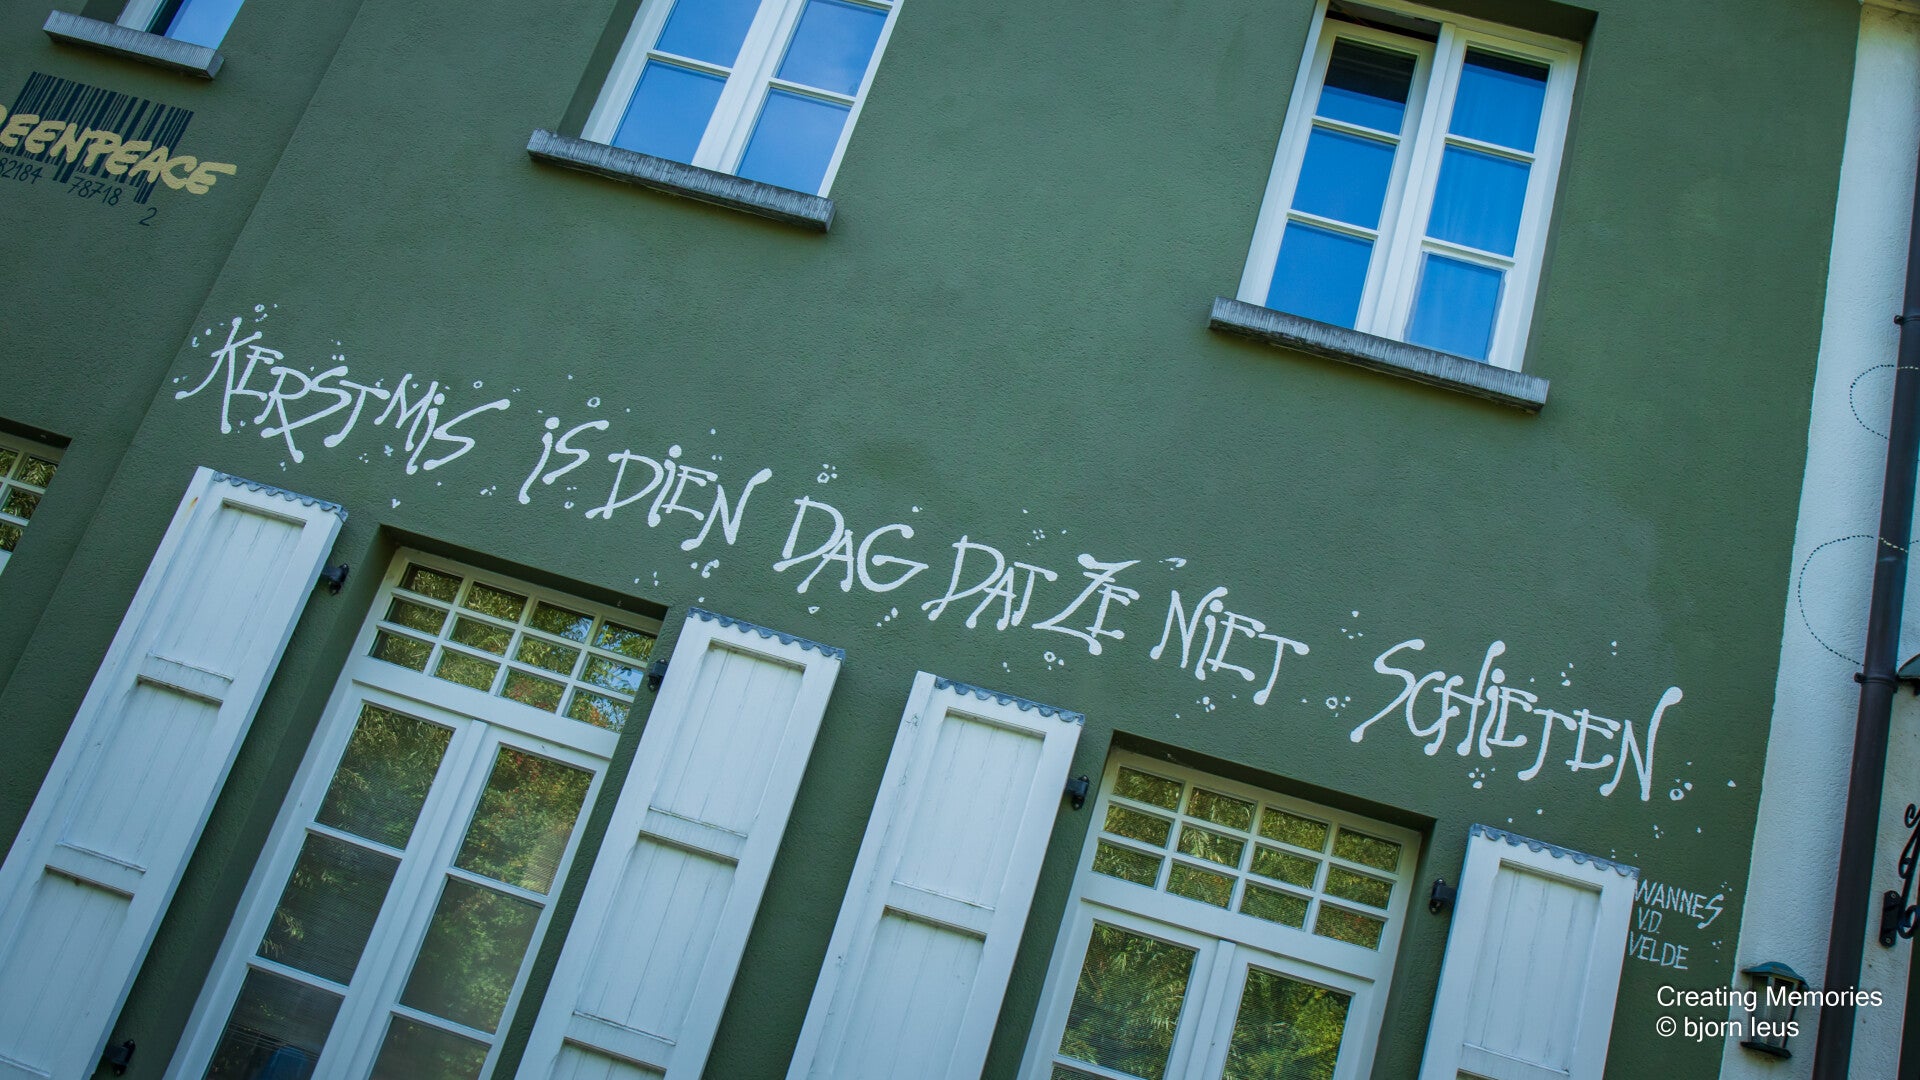 REENPEACE
82184 78718 2
KERSTMIS IS DIEN DAG DAT ZE NIET SCHIETEN
WANNES
V.D.
VELDE
Creating Memories
© bjorn leus